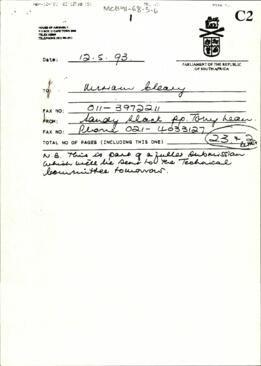 MCH91-68-3-6
C2
HOUSE OF ASSEMBLY
PARLIAMENT OF THE REPUBLIC
OF SOUTH AFRICA
Date: 12.5.93
TO: Cleary
FAX NO: 011-3972211
FROM: Sandy Black pp. Tony Leon
FAX NO: Phone 021-4033127
TOTAL NO OF PAGES (INCLUDING THIS ONE) 23 + 2
N.B. This is part of a fuller submission
which will be sent to the Technical
Committee tomorrow.